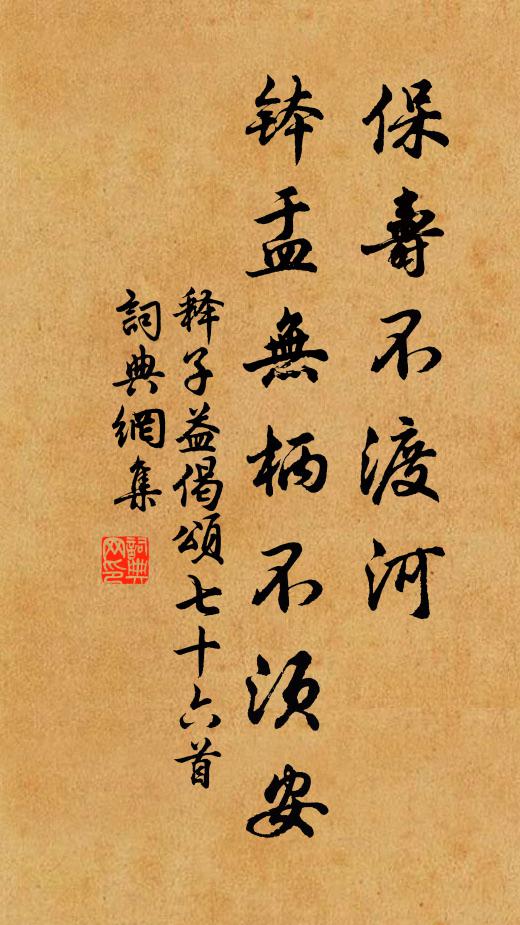 保壽不渡河
鉢盂無柄不須安
释子益偈頌七十六首
詞典網集
詞典网印